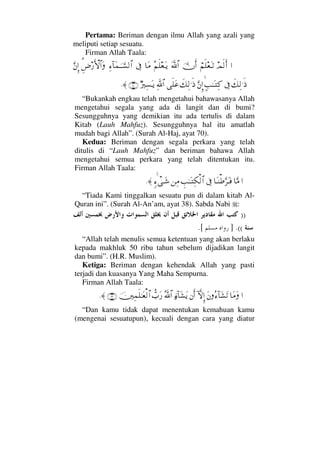 Pertama: Beriman dengan ilmu Allah yang azali yang
meliputi setiap sesuatu.
Firman Allah Taala:
ا أَلَمْ تَعْلَمْ أَنَّ ٱللَّهَ يَعْلَمُ مَا فِى ٱلسَّمَآءِ وَٱلْأَرْضِ ۗ إِنَّ
ذَٰلِكَ فِى كِتَٰبٍ ۚ إِنَّ ذَٰلِكَ عَلَى ٱللَّهِ يَسِيرٌ ﴾.
“Bukankah engkau telah mengetahui bahawasanya Allah
mengetahui segala yang ada di langit dan di bumi?
Sesungguhnya yang demikian itu ada tertulis di dalam
Kitab (Lauh Mahfuz). Sesungguhnya hal itu amatlah
mudah bagi Allah”. (Surah Al-Haj, ayat 70).
Kedua: Beriman dengan segala perkara yang telah
ditulis di “Lauh Mahfuz” dan beriman bahawa Allah
mengetahui semua perkara yang telah ditentukan itu.
Firman Allah Taala:
ا مَّا فَرَّطْنَا فِى ٱلْكِتَٰبِ مِن شَىْءٍ ۚ ﴾.
“Tiada Kami tinggalkan sesuatu pun di dalam kitab Al-
Quran ini”. (Surah Al-An’am, ayat 38). Sabda Nabi ﷺ:
(( كتب الله مقادير الخلائق قبل أن يخلق السموات والأرض بخمسين ألف
سنة )). [ رواه مسلم ].
“Allah telah menulis semua ketentuan yang akan berlaku
kepada makhluk 50 ribu tahun sebelum dijadikan langit
dan bumi”. (H.R. Muslim).
Ketiga: Beriman dengan kehendak Allah yang pasti
terjadi dan kuasanya Yang Maha Sempurna.
Firman Allah Taala:
ا وَمَا تَشَآءُونَ إِلَّآ أَن يَشَآءَ ٱللَّهُ رَبُّ ٱلْعَٰلَمِينَ ﴾.
“Dan kamu tidak dapat menentukan kemahuan kamu
(mengenai sesuatupun), kecuali dengan cara yang diatur